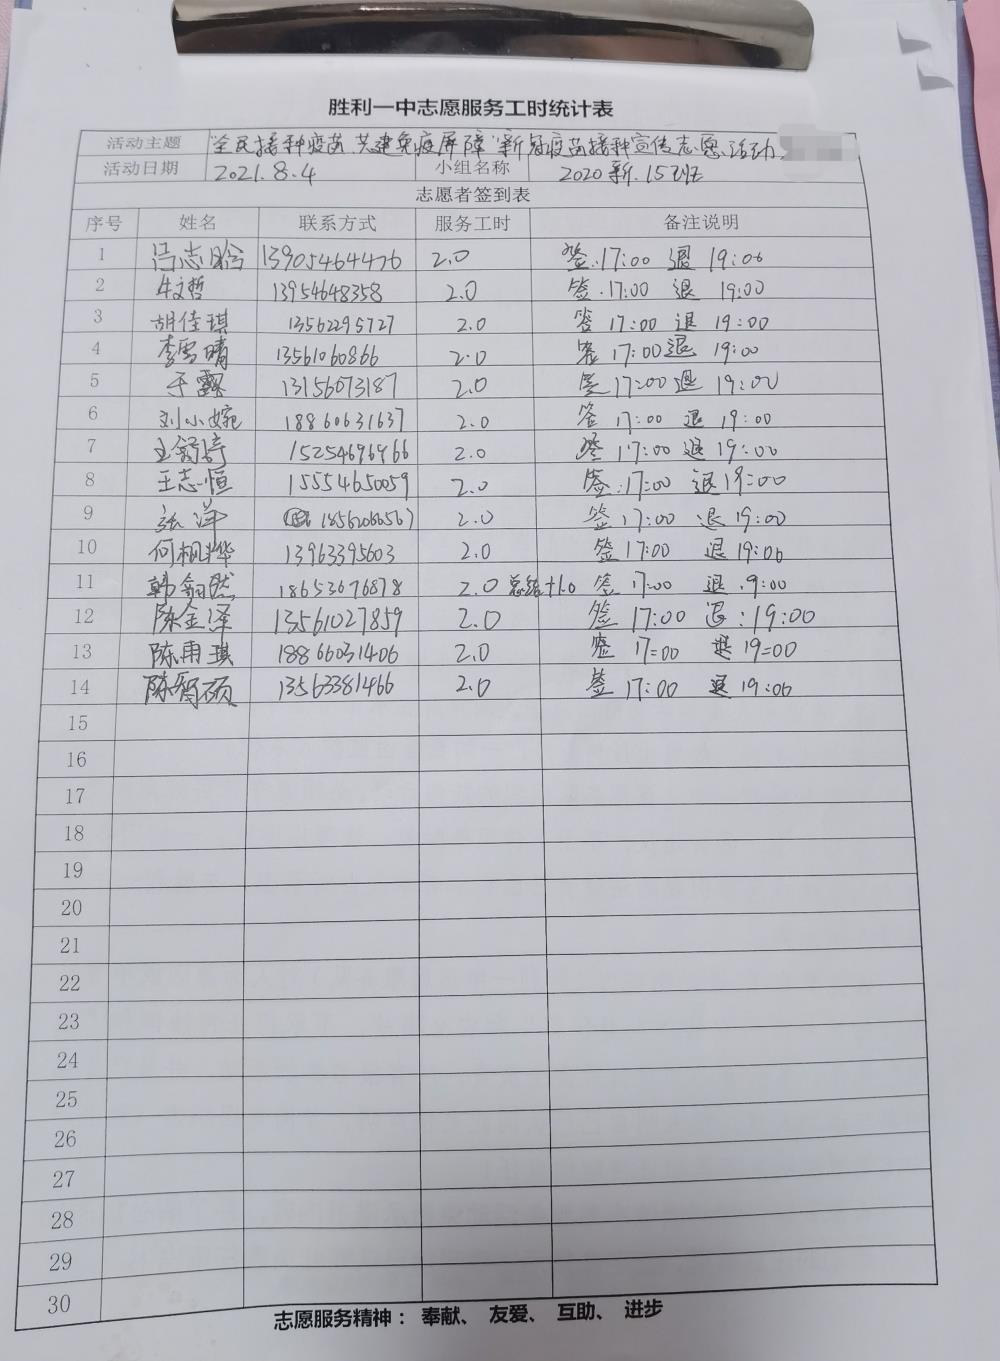 胜利一中志愿服务工时统计表
活动主题 "全民接种疫苗,共建免疫屏障"新冠疫苗接种宣传志愿活动
活动日期 2021.8.4 小组名称 2020新.15班
志愿者签到表
序号 姓名 联系方式 服务工时 备注说明
1 吕志晗 13905464476 2.0 签:17:00 退 19:00
2 牛文哲 13954648358 2.0 签.17:00 退 19:00
3 胡佳琪 13562295727 2.0 签 17:00 退 19:00
4 李雪晴 13561060866 2.0 签 17:00 退 19:00
5 于露 13156073187 2.0 签 17:00 退 19:00
6 刘小婉 18860631637 2.0 签 17:00 退 19:00
7 王舒 15254696966 2.0 签 17:00 退 19:00
8 王志恒 15554650059 2.0 签:17:00 退 19:00
9 张洋 1856206656 2.0 签 17:00 退 19:00
10 何桐烨 13963395603 2.0 签 17:00 退 19:00
11 韩翎然 18653676878 2.0 总结+1.0 签 17:00 退 19:00
12 陈金泽 13561027859 2.0 签 17:00 退:19:00
13 陈甬琪 18866031406 2.0 签 17=00 退 19=00
14 陈智硕 13563381466 2.0 签 17:00 退 19:00
15
16
17
18
19
20
21
22
23
24
25
26
27
28
29
30
志愿服务精神: 奉献、 友爱、 互助、 进步